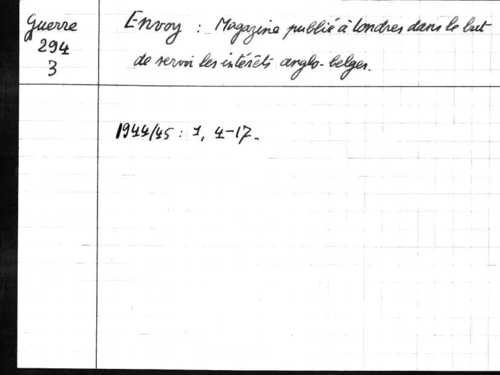 Guerre
294
3
Envoy : Magazine publié à Londres dans le but
de servir les intérêts anglo-belges.
1944/45 : 1, 4-17.